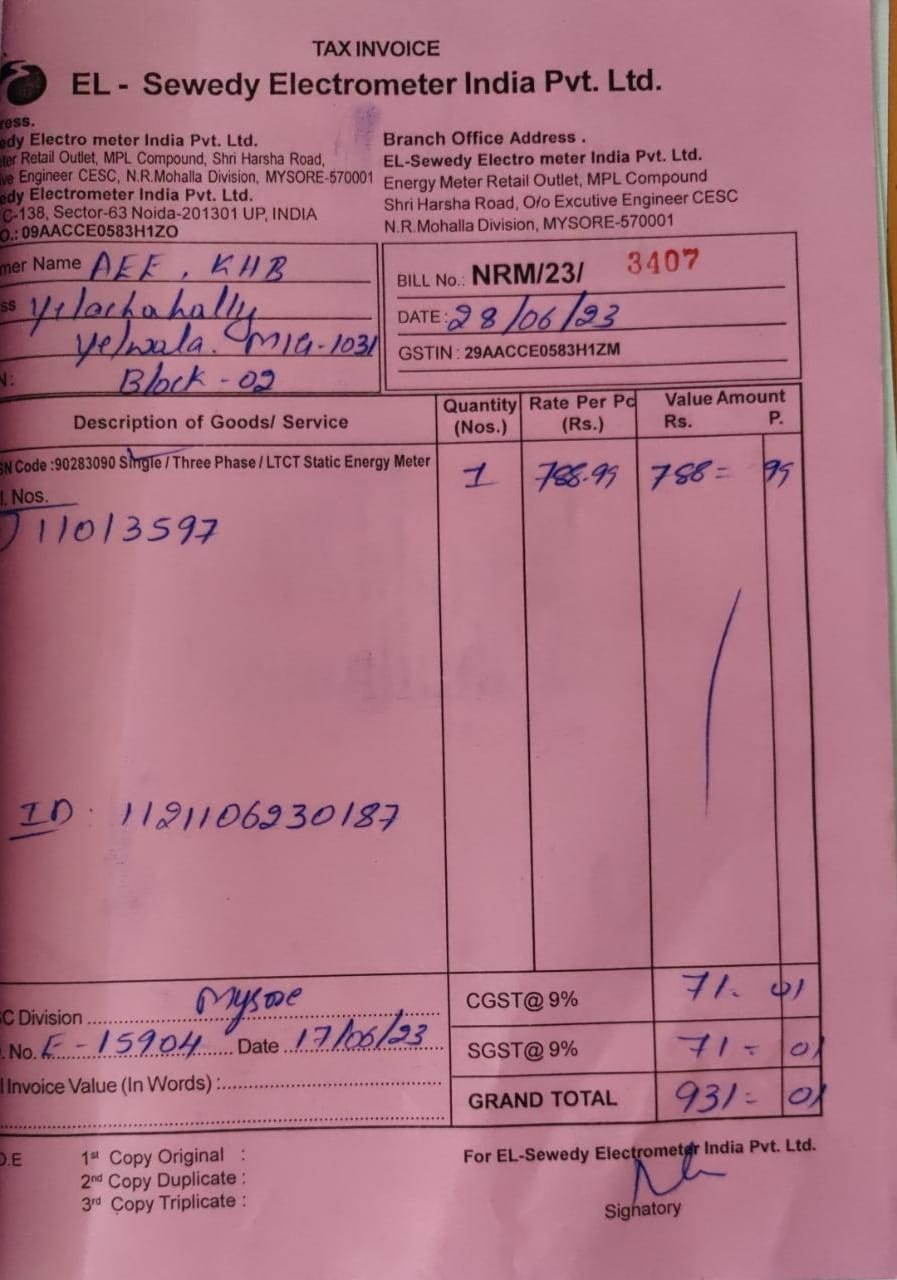 TAX INVOICE
EL - Sewedy Electrometer India Pvt. Ltd.
ress.
edy Electro meter India Pvt. Ltd.
ter Retail Outlet, MPL Compound, Shri Harsha Road,
ve Engineer CESC, N.R.Mohalla Division, MYSORE-570001
edy Electrometer India Pvt. Ltd.
C-138, Sector-63 Noida-201301 UP, INDIA
O.: 09AACCE0583H1ZO
Branch Office Address .
EL-Sewedy Electro meter India Pvt. Ltd.
Energy Meter Retail Outlet, MPL Compound
Shri Harsha Road, O/o Excutive Engineer CESC
N.R.Mohalla Division, MYSORE-570001
mer Name AEE, KHB
ss Yelachahally
Yelwala. MIG-1031
N: Block-02
BILL No.: NRM/23/ 3407
DATE: 28/06/23
GSTIN : 29AACCE0583H1ZM
Description of Goods/ Service Quantity (Nos.) Rate Per Pc (Rs.) Value Amount Rs. P.
SN Code :90283090 Single / Three Phase / LTCT Static Energy Meter 1 788.99 788= 99
l. Nos.
) 11013597
ID: 1121106230187
C Division Mysore
. No. E-15904 Date 17/06/23
l Invoice Value (In Words) :
CGST@ 9% 71. 01
SGST@ 9% 71= 01
GRAND TOTAL 931= 01
O.E
1st Copy Original :
2nd Copy Duplicate :
3rd Copy Triplicate :
For EL-Sewedy Electrometer India Pvt. Ltd.
Signatory